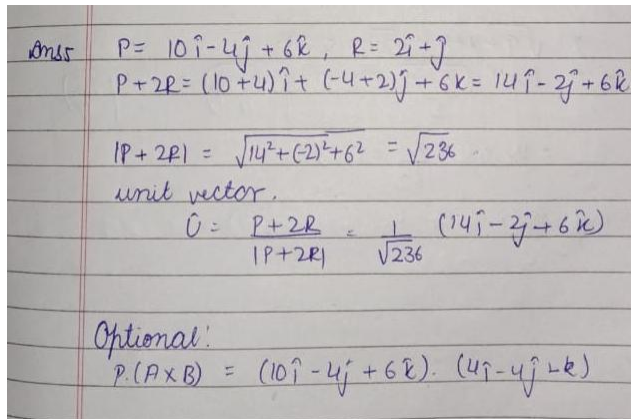 Ans5 P = 10î - 4ĵ + 6k̂ , R = 2î + ĵ
P + 2R = (10+4)î + (-4+2)ĵ + 6k = 14î - 2ĵ + 6k̂
|P + 2R| = √(14² + (-2)² + 6²) = √236 .
unit vector.
Û = P + 2R / |P + 2R| = 1/√236 (14î - 2ĵ + 6k̂)
Optional:
P.(A×B) = (10î - 4ĵ + 6k̂). (4î - 4ĵ - k)